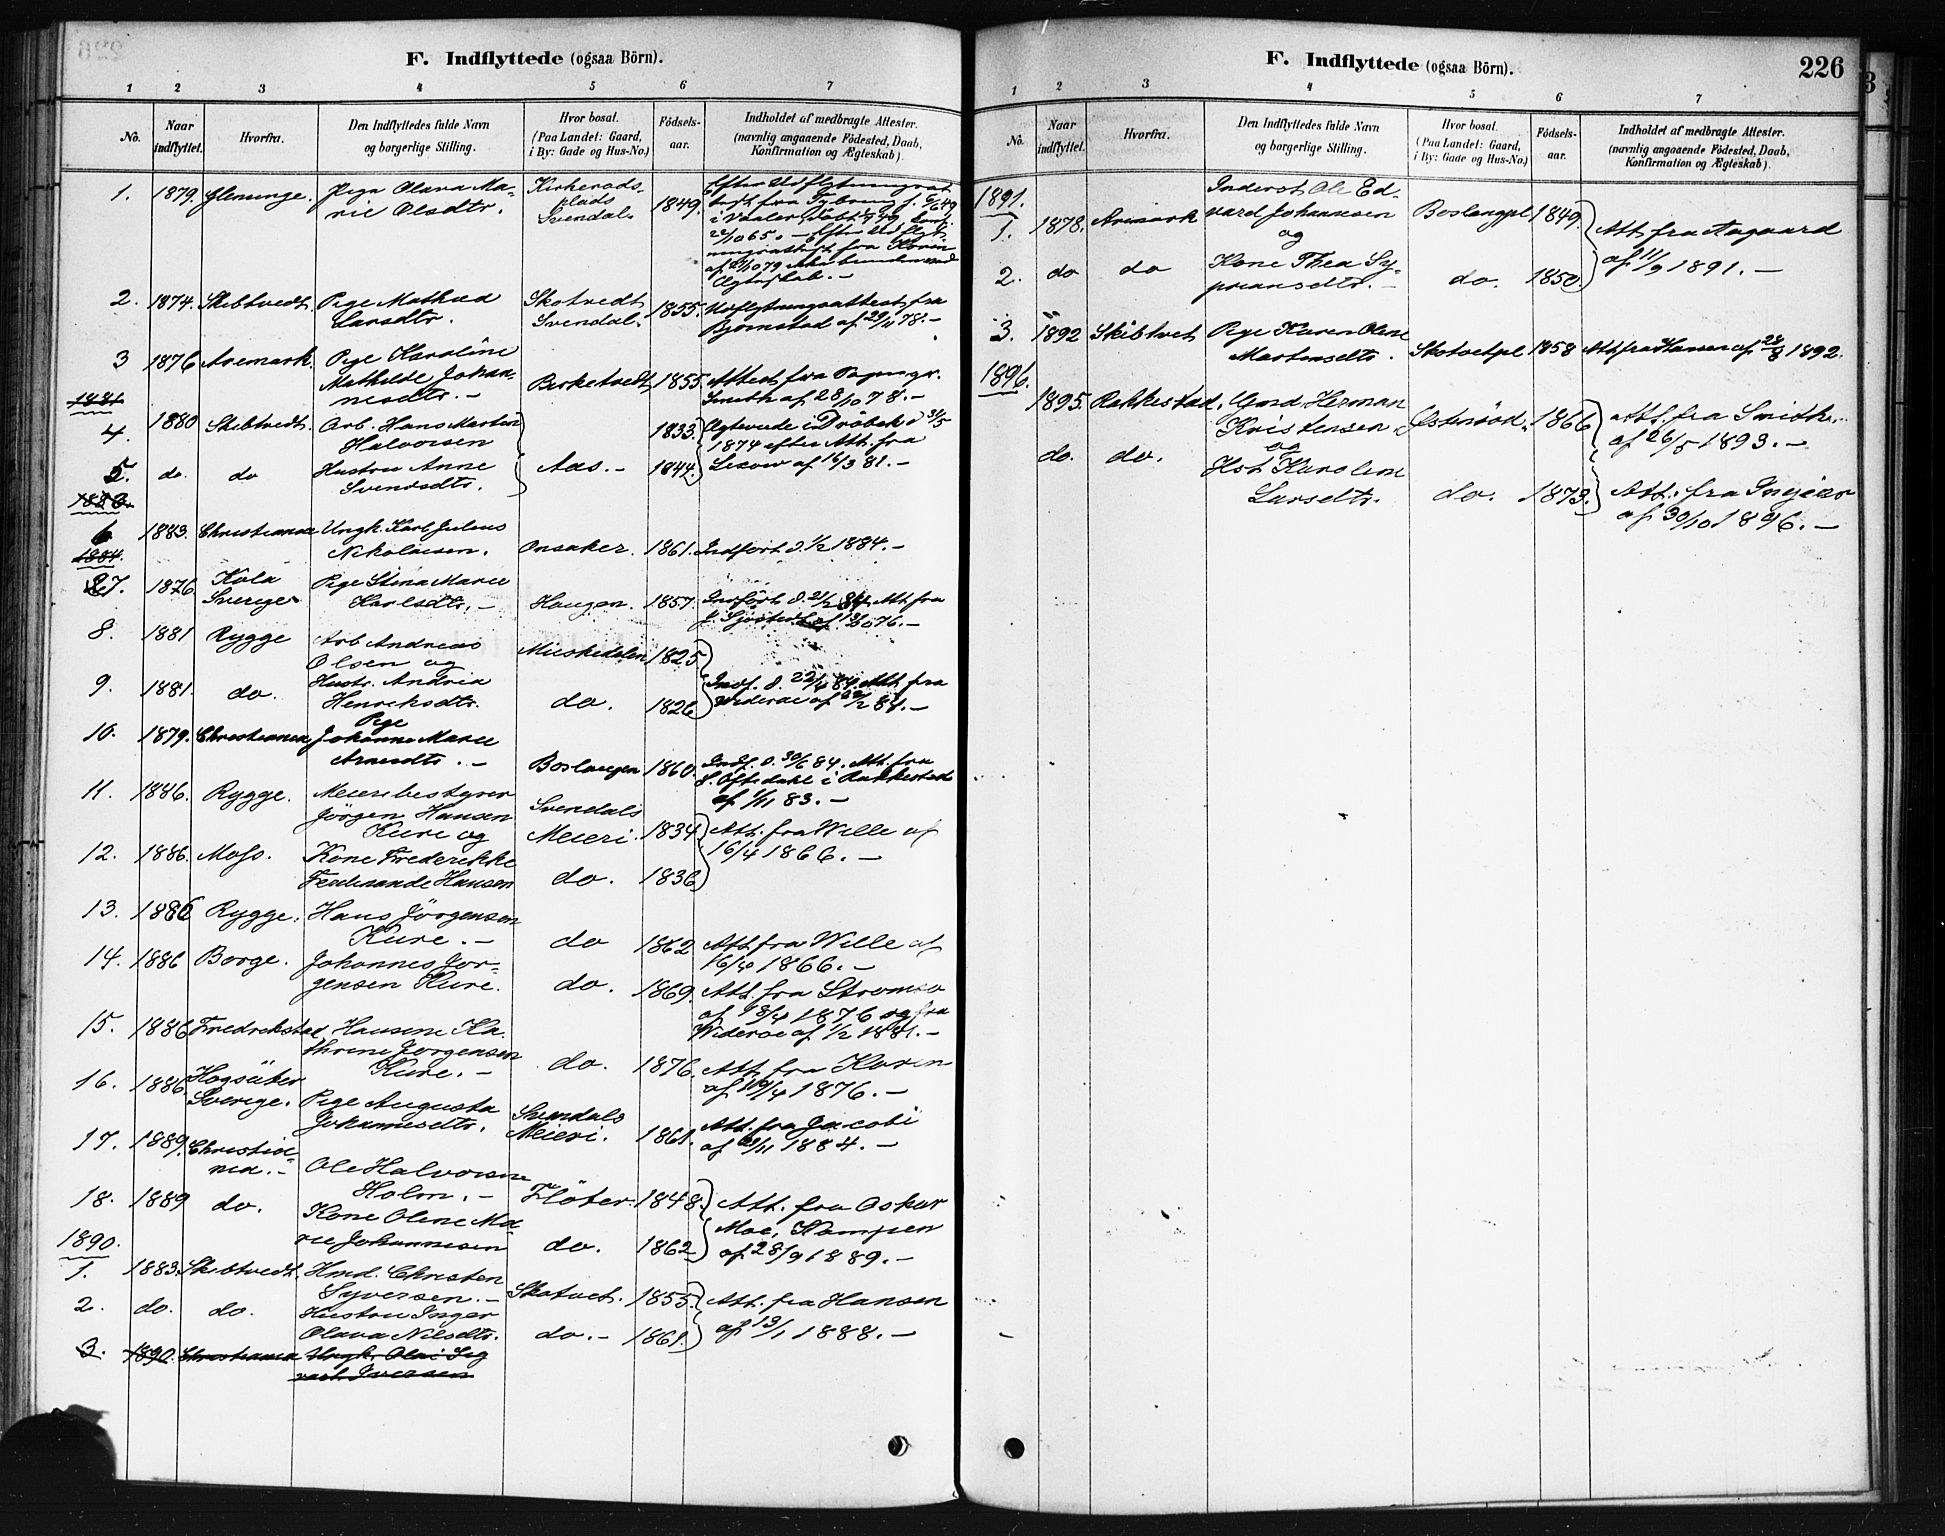 F. Indflyttede (ogsaa Börn).
1 2 3 4 5 6 7
No. Naar indflyttet. Hvorfra. Den Indflyttedes fulde Navn og borgerlige Stilling. Hvor bosat. (Paa Landet: Gaard, i By: Gade og Hus-No.) Födsels-aar. Indholdet af medbragte Attester. (navnlig angaaende Födested, Daab, Konfirmation og Ægteskab).
1. 1879. Glemminge. Pige Olava Ma-
rie Olsdtr. Kirkerods-
plads
Svendal. 1849.
2. 1874. Skibtvedt. Pige Mathea
Larsdtr. Skotvedt
Svendal. 1855. Udflytningsattest fra
Bjørnstad af 29/11 78.-
3 1876 Aremark. Pige Karoline
Mathilde Johan-
nesdtr.- Birketvedt 1855. Attest fra Sognepr.
Smith af 28/10 78.-
1881
4. 1880 Skibtvedt. Arb. Hans Martin
Halvorsen 1833. Ægteviede i Dröbak d 31/5
1874 efter Att. fra
5. do. do Hustru Anne
Svendsdtr. Aas.- 1844. af 16/3 81.-
1883.
6 1883. Christiania Ungk. Karl Julius
Nikolaisen. Onsaker. 1861. Indfört d. 1/2 1884.-
1884.
7. 1876 Kola
Sverige Pige Stina Marie
Karlsdtr.- Haugen. 1857. Indfört d. 21/2 84 Att fra
J. Sjöstedt
8. 1881 Rygge Arb Andreas
Olsen og Mieskedalen 1825.
9. 1881. do. Hustr. Andrea
Henriksdtr. do. 1826 Indf. d. 22/4 84 Att fra
Wideröe af 22/2 84.-
10. 1879. Christiania Pige
Johanne Marie
Arnesdtr.- Boslangen 1860. Indf. d. 30/6 84. Att. fra
S. Oftedahl i Rakkestad
af 1/11 83.-
11. 1886. Rygge. Meieribestyrer
Jörgen Hansen
Kure og Svendals
Meieri. 1834 Att. fra Wille af
16/4 1866.-
12. 1886. Moss. Kone Frederikke
Ferdinande Hansen do. 1836
13. 1886 Rygge. Hans Jörgensen
Kure.- do 1862 Att. fra Wille af
16/4 1866.-
14. 1886 Borge. Johannes Jör-
gensen Kure. do. 1869. Att. fra Strömsö
af 3/4 1876 og fra
Wideröe af 1/2 1881.-
15. 1886 Fredrikstad Hansine Ka-
thrine Jörgensen
Kure.- do. 1876. Att. fra Koren
af 19/4 1876.-
16. 1886. Högsäter
Sverige. Pige Augusta
Johannesdtr. Svendals
Meieri. 1861. Att. fra Jacobi
1884.-
17. 1889. Christia-
nia.- Ole Halvorsen
Holm.- Flöter. 1848. Att. fra Oskar
Moe, Kampen
af 28/9 1889.-
18. 1889 do. Kone Oline Ma-
rie Johannesen do. 1862
1890.
1. 1883. Skibtvedt. Hmd. Christen
Syversen.- Skotvet. 1855. Att. fra Hansen
af 13/1 1888.-
2. do. do. Hustru Inger
Olava Nilsdtr. do.- 1861.
3. 1890. Christiania Ungk. Olai Sig
vart Iversen
F. Indflyttede (ogsaa Börn). 226
1 2 3 4 5 6 7
No. Naar indflyttet. Hvorfra. Den Indflyttedes fulde Navn og borgerlige Stilling. Hvor bosat. (Paa Landet: Gaard, i By: Gade og Hus-No.) Födsels-aar. Indholdet af medbragte Attester. (navnlig angaaende Födested, Daab, Konfirmation og Ægteskab)
1891.
1. 1878. Aremark Inderst Ole Ed-
vard Johannesen
og Boslangpl 1849. Att fra Aagaard
af 11/9 1891.-
2. do do Kone Thea Sy-
priansdtr.- do. 1850.
3. 1892 Skibtvet Pige Karen Oline
Martinsdtr. Skotvetpl 1858 Att fra Hansen af 28/8 1892.
1896.
1895. Rakkestad. Gmd. Herman
Kristensen
og Östenröd. 1866 Att. fra Smith.
af 26/5 1893.-
do. do. Hst Karoline
Larsdtr. do. 1873. Att. fra
af 30/10 1896.-